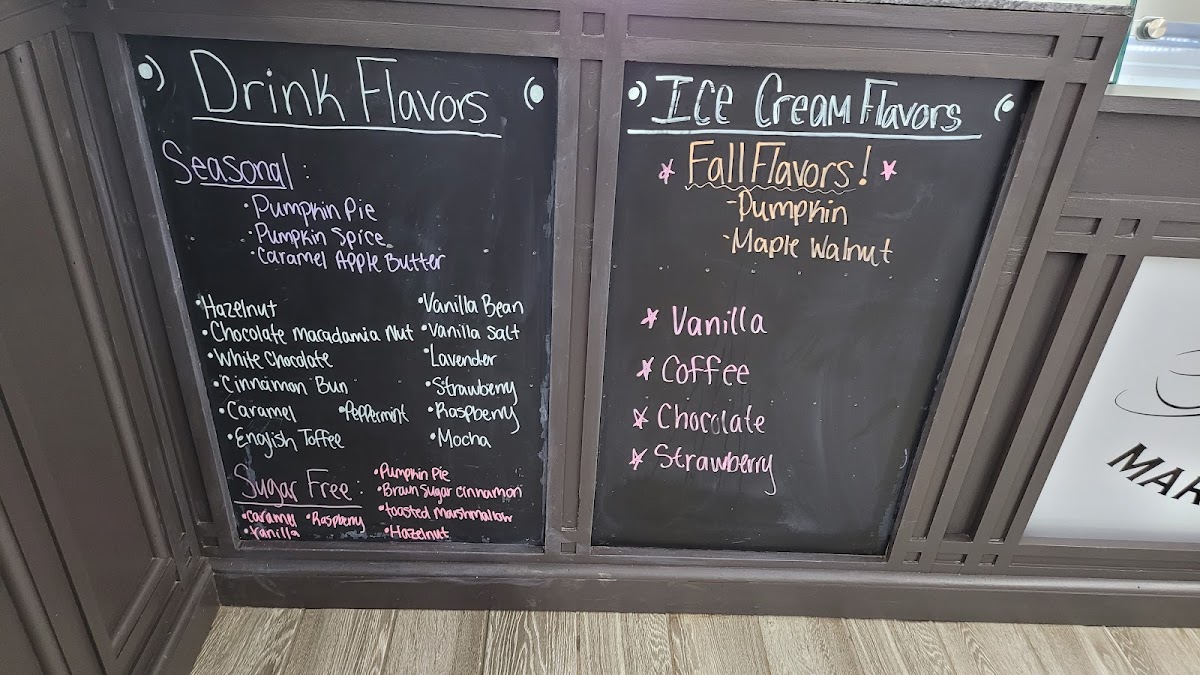 Drink Flavors
Seasonal:
• Pumpkin Pie
• Pumpkin Spice
• Caramel Apple Butter
• Hazelnut
• Chocolate Macadamia Nut
• White Chocolate
• Cinnamon Bun
• Caramel
• Peppermint
• English Toffee
• Vanilla Bean
• Vanilla Salt
• Lavender
• Strawberry
• Raspberry
• Mocha
Sugar Free:
• Caramel • Raspberry
• Vanilla
• Pumpkin Pie
• Brown Sugar Cinnamon
• toasted Marshmallow
• Hazelnut
Ice Cream Flavors
Fall Flavors!
- Pumpkin
- Maple Walnut
Vanilla
Coffee
Chocolate
Strawberry